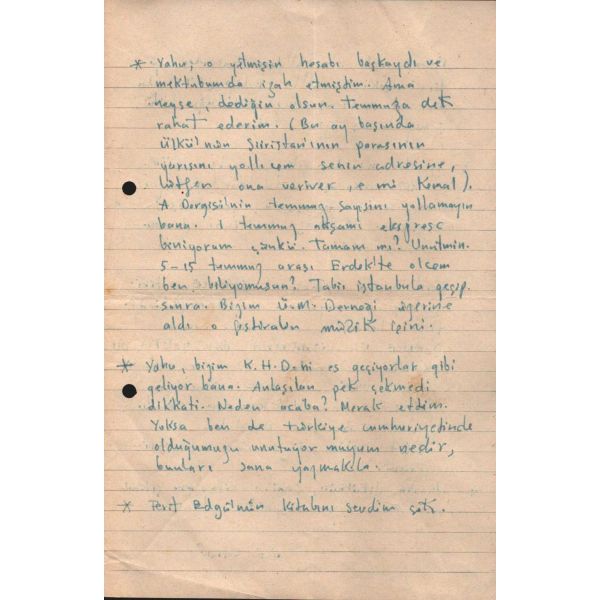 * Yahu, o yetmişin hesabı başkaydı ve
mektubumda izah etmiştim. Ama
neyse, dediğin olsun. temmuza dek
rahat ederim. (Bu ay başında
ülkü'nün Şiiristan'ının parasının
yarısını yollıcem senin adresine,
lütfen ona veriver, e mi Kemal).
A Dergisi'nin temmuz sayısını yollamayın
bana. 1 temmuz akşamı ekspresc
biniyorum çünkü. Tamam mı? Unutmın.
5-15 temmuz arası Erdek'te olcem
ben biliyomusun? Tabi istanbula geçip
sonra. Bizim Ü.M. Derneği üzerine
aldı o festivalın müzik işini.
* Yahu, bizim K.H.D.ni es geçiyorlar gibi
geliyor bana. Anlaşılan pek çekmedi
dikkati. Neden acaba? Merak ettim.
Yoksa ben de türkiye cumhuriyetinde
olduğumuzu unutuyor muyum nedir,
bunları sana yazmakla.
* Ferit Edgü'nün kitabını sevdim